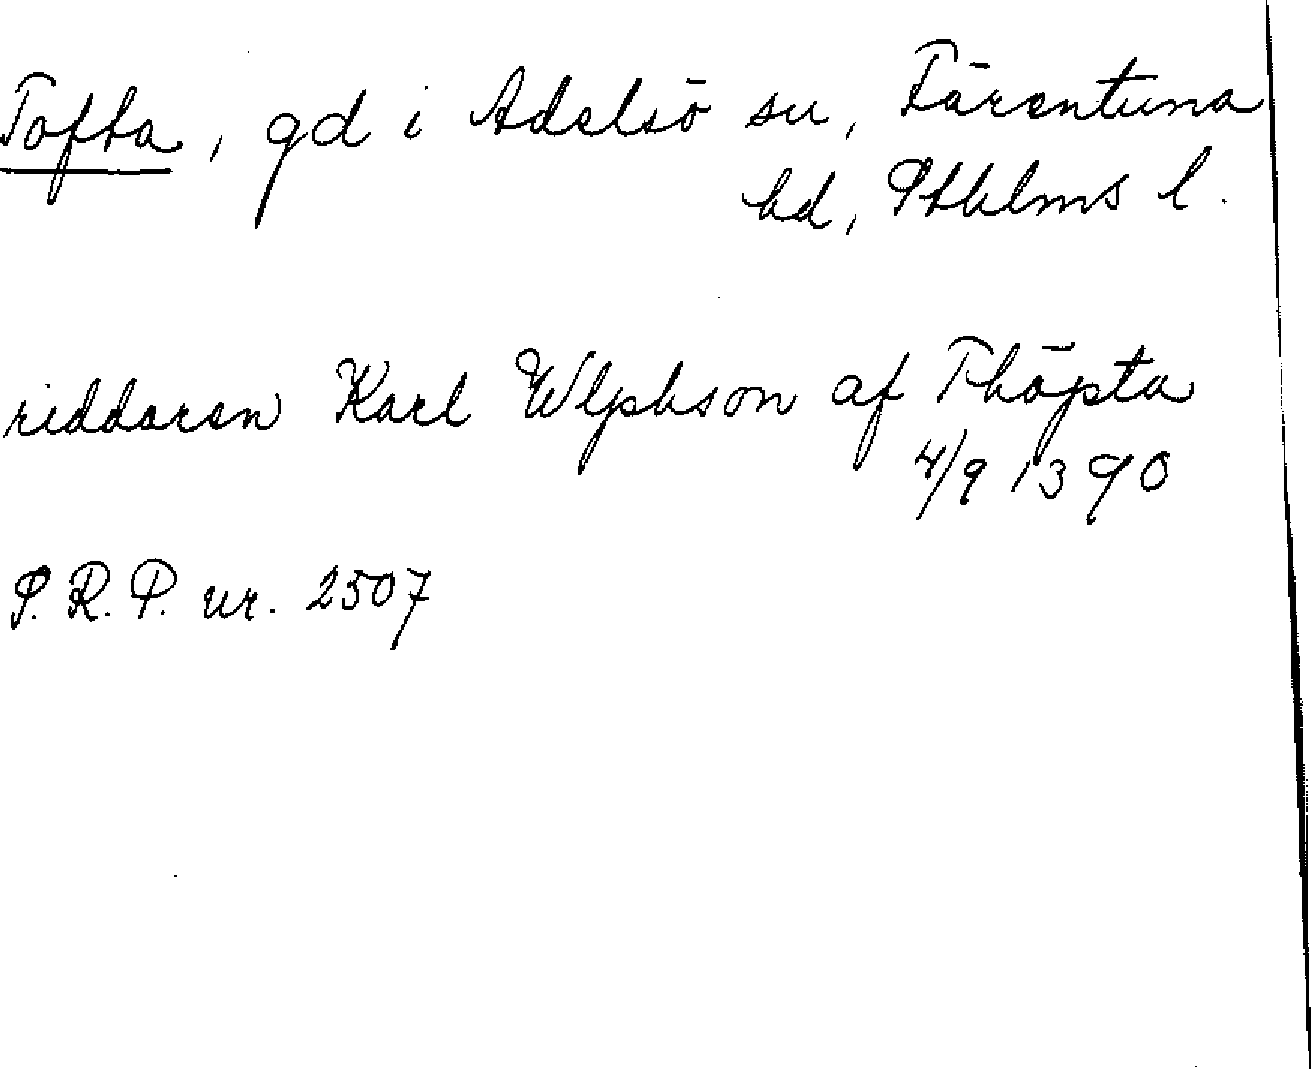 Tofta, gd i Adelsö sn, Färentuna
hd, Sthlms l.
riddaren Karl Wlphson af Thöpta
4/9 1390
S.R.P. nr. 2507